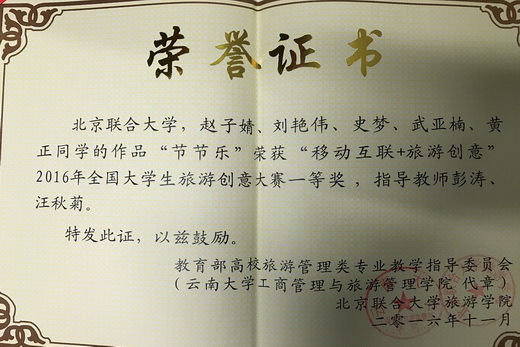 荣誉证书
北京联合大学,赵子婧、刘艳伟、史梦、武亚楠、黄
正同学的作品“节节乐”荣获“移动互联+旅游创意”
2016年全国大学生旅游创意大赛一等奖，指导教师彭涛、
汪秋菊。
特发此证，以兹鼓励。
教育部高校旅游管理类专业教学指导委员会
(云南大学工商管理与旅游管理学院 代章)
北京联合大学旅游学院
二零一六年十一月